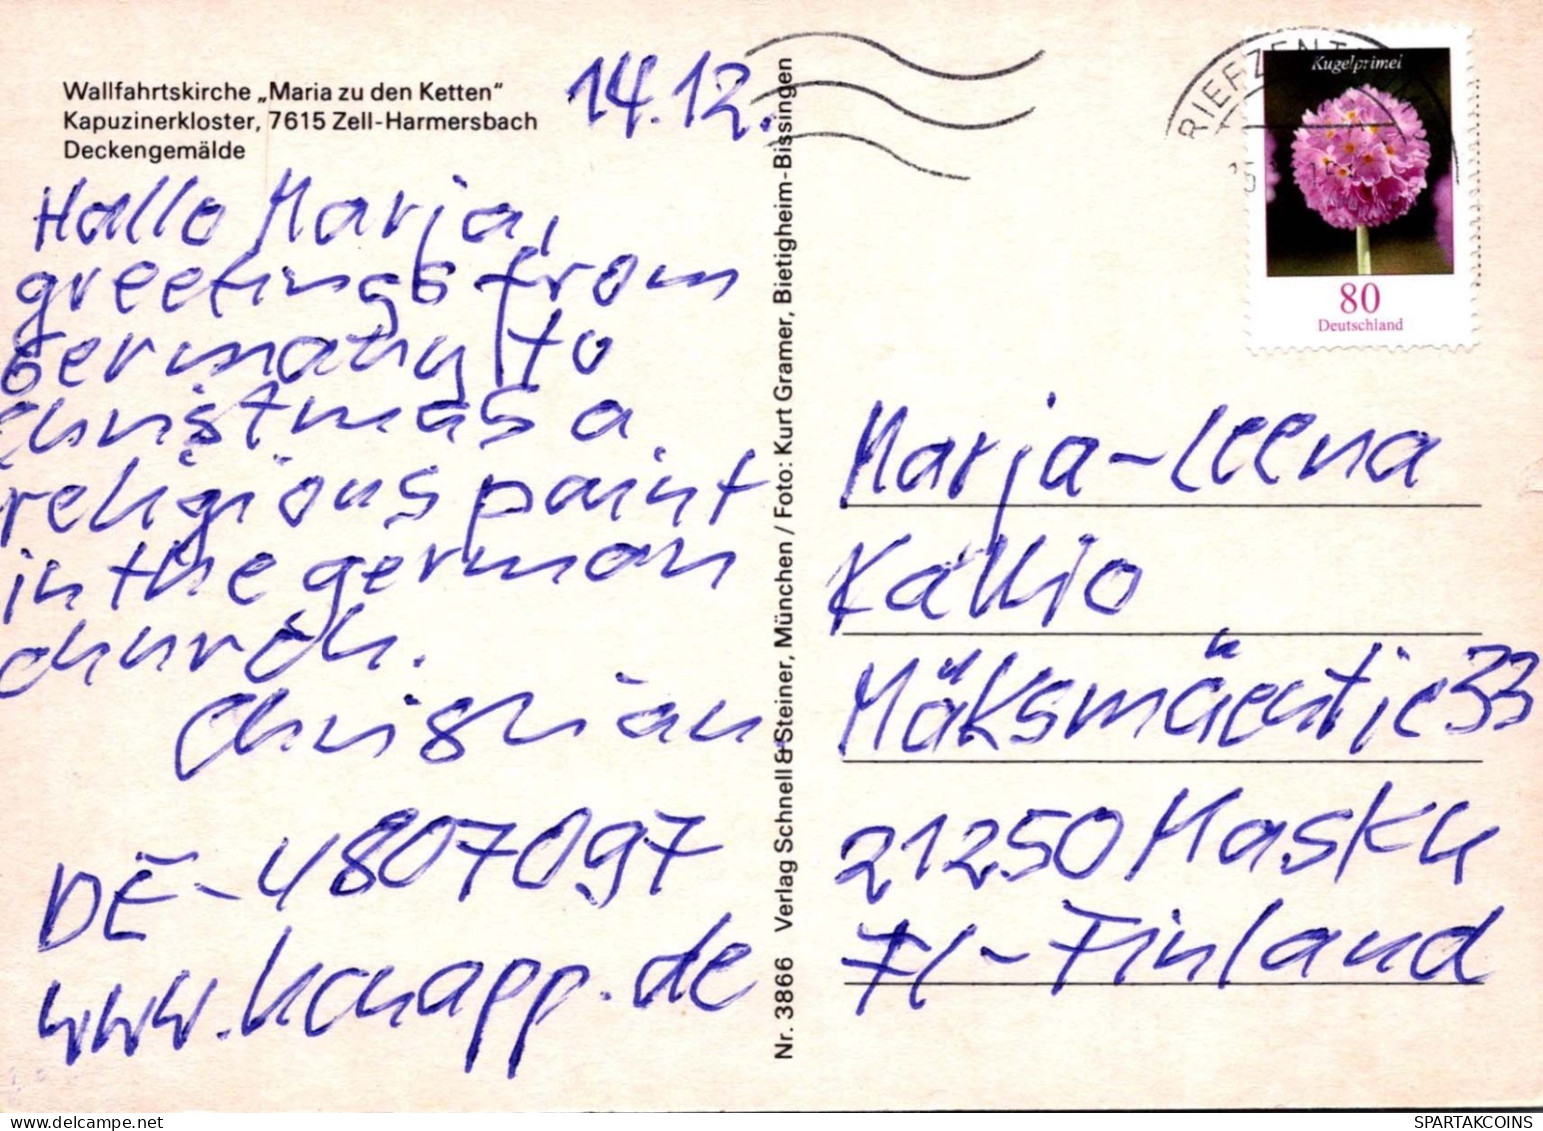 Wallfahrtskirche „Maria zu den Ketten“
Kapuzinerkloster, 7615 Zell-Harmersbach
Deckengemälde
14.12.
Hallo Marja,
greetings from
Germany to
Christmas a
religious paint
in the german
church.
Christian
DE-4807097
www.kcnapp.de
Nr. 3866 Verlag Schnell & Steiner, München / Foto: Kurt Gramer, Bietigheim-Bissingen
RIEFZENT
Kugelprimel
80
Deutschland
Marja-Leena
Kallio
Mäksmäentie 33
21250 Masku
FI-Finland
SPARTAKCOINS.COM